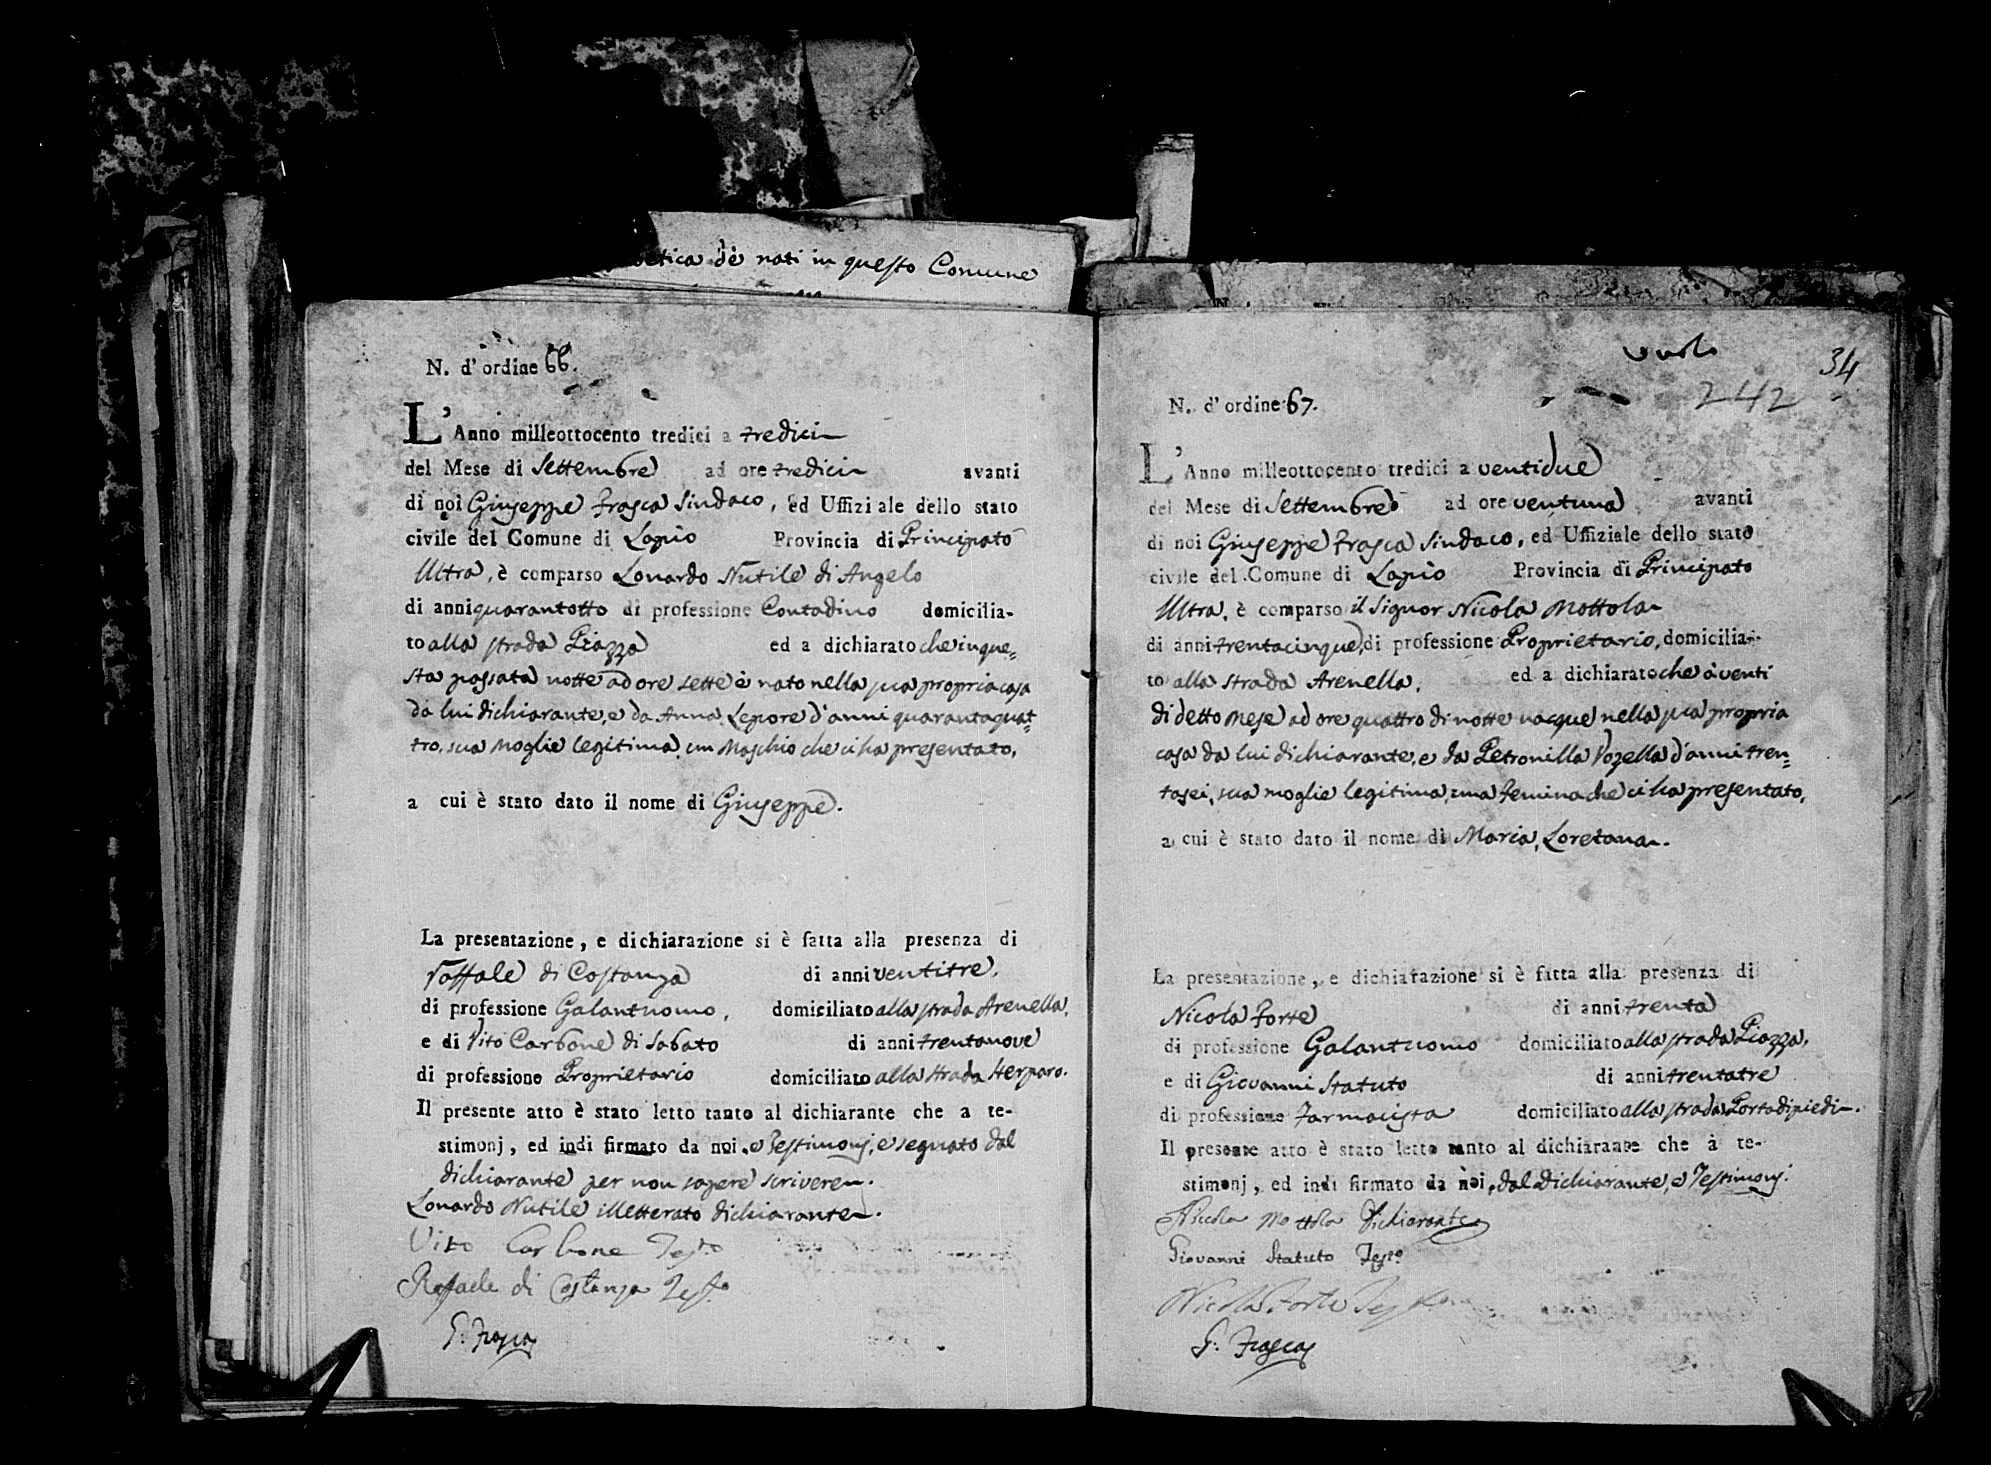 betica dè nati in questo Comune
N. d'ordine 66.
L'Anno milleottocento tredici a tredici
del Mese di Settembre ad ore tredici avanti
di noi Giuseppe Frasca Sindaco, ed Uffiziale dello stato
civile del Comune di Lapio Provincia di Principato
Ultra, è comparso Lonardo Nutile di Angelo
di anni quarantotto di professione Contadino domicilia-
to alla strada Piazza ed a dichiarato che in que=
sta passata notte ad ore sette è nato nella sua propria casa
da lui dichiarante, e da Anna Lepore d'anni quarantaquat=
tro, sua moglie legitima, un Maschio che ci ha presentato,
a cui è stato dato il nome di Giuseppe.
La presentazione, e dichiarazione si è fatta alla presenza di
Raffale di Costanza di anni ventitre,
di professione Galantuomo, domiciliato alla strada Arenella,
e di Vito Carbone di Sabato di anni trentanove
di professione Proprietario domiciliato alla strada Herparo.
Il presente atto è stato letto tanto al dichiarante che a te-
stimonj, ed indi firmato da noi, e Testimonj, e segnato dal
dichiarante per non sapere scrivere.
Lonardo Nutile illetterato dichiarante.
Vito Carbone Testo
Rafaele di Costanza Testo
G. Frasca
34
242
N. d'ordine 67.
L'Anno milleottocento tredici a ventidue
del Mese di Settembre ad ore ventuna avanti
di noi Giuseppe Frasca Sindaco, ed Uffiziale dello stato
civile del Comune di Lapio Provincia di Principato
Ultra, è comparso il Signor Nicola Mottola
di anni trentacinque, di professione Proprietario, domicilia-
to alla strada Arenella, ed a dichiarato che à venti
di detto mese ad ore quattro di notte nacque nella sua propria
casa da lui dichiarante, e da Petronilla Vozella d'anni tren=
tasei, sua moglie legitima, una femina che ci ha presentato,
a cui è stato dato il nome di Maria, Loretana.
La presentazione, e dichiarazione si è fatta alla presenza di
Nicola Forte di anni trenta
di professione Galantuomo domiciliato alla strada Piazza,
e di Giovanni Statuto di anni trentatre
di professione Farmacista domiciliato alla strada Portadipiedi.
Il presente atto è stato letto tanto al dichiarante che à te-
stimonj, ed indi firmato da noi, dal Dichiarante, e Testimonj.
Nicola Mottola Dichiarante
Giovanni Statuto Testo
Nicola Forte Testo
G. Frasca